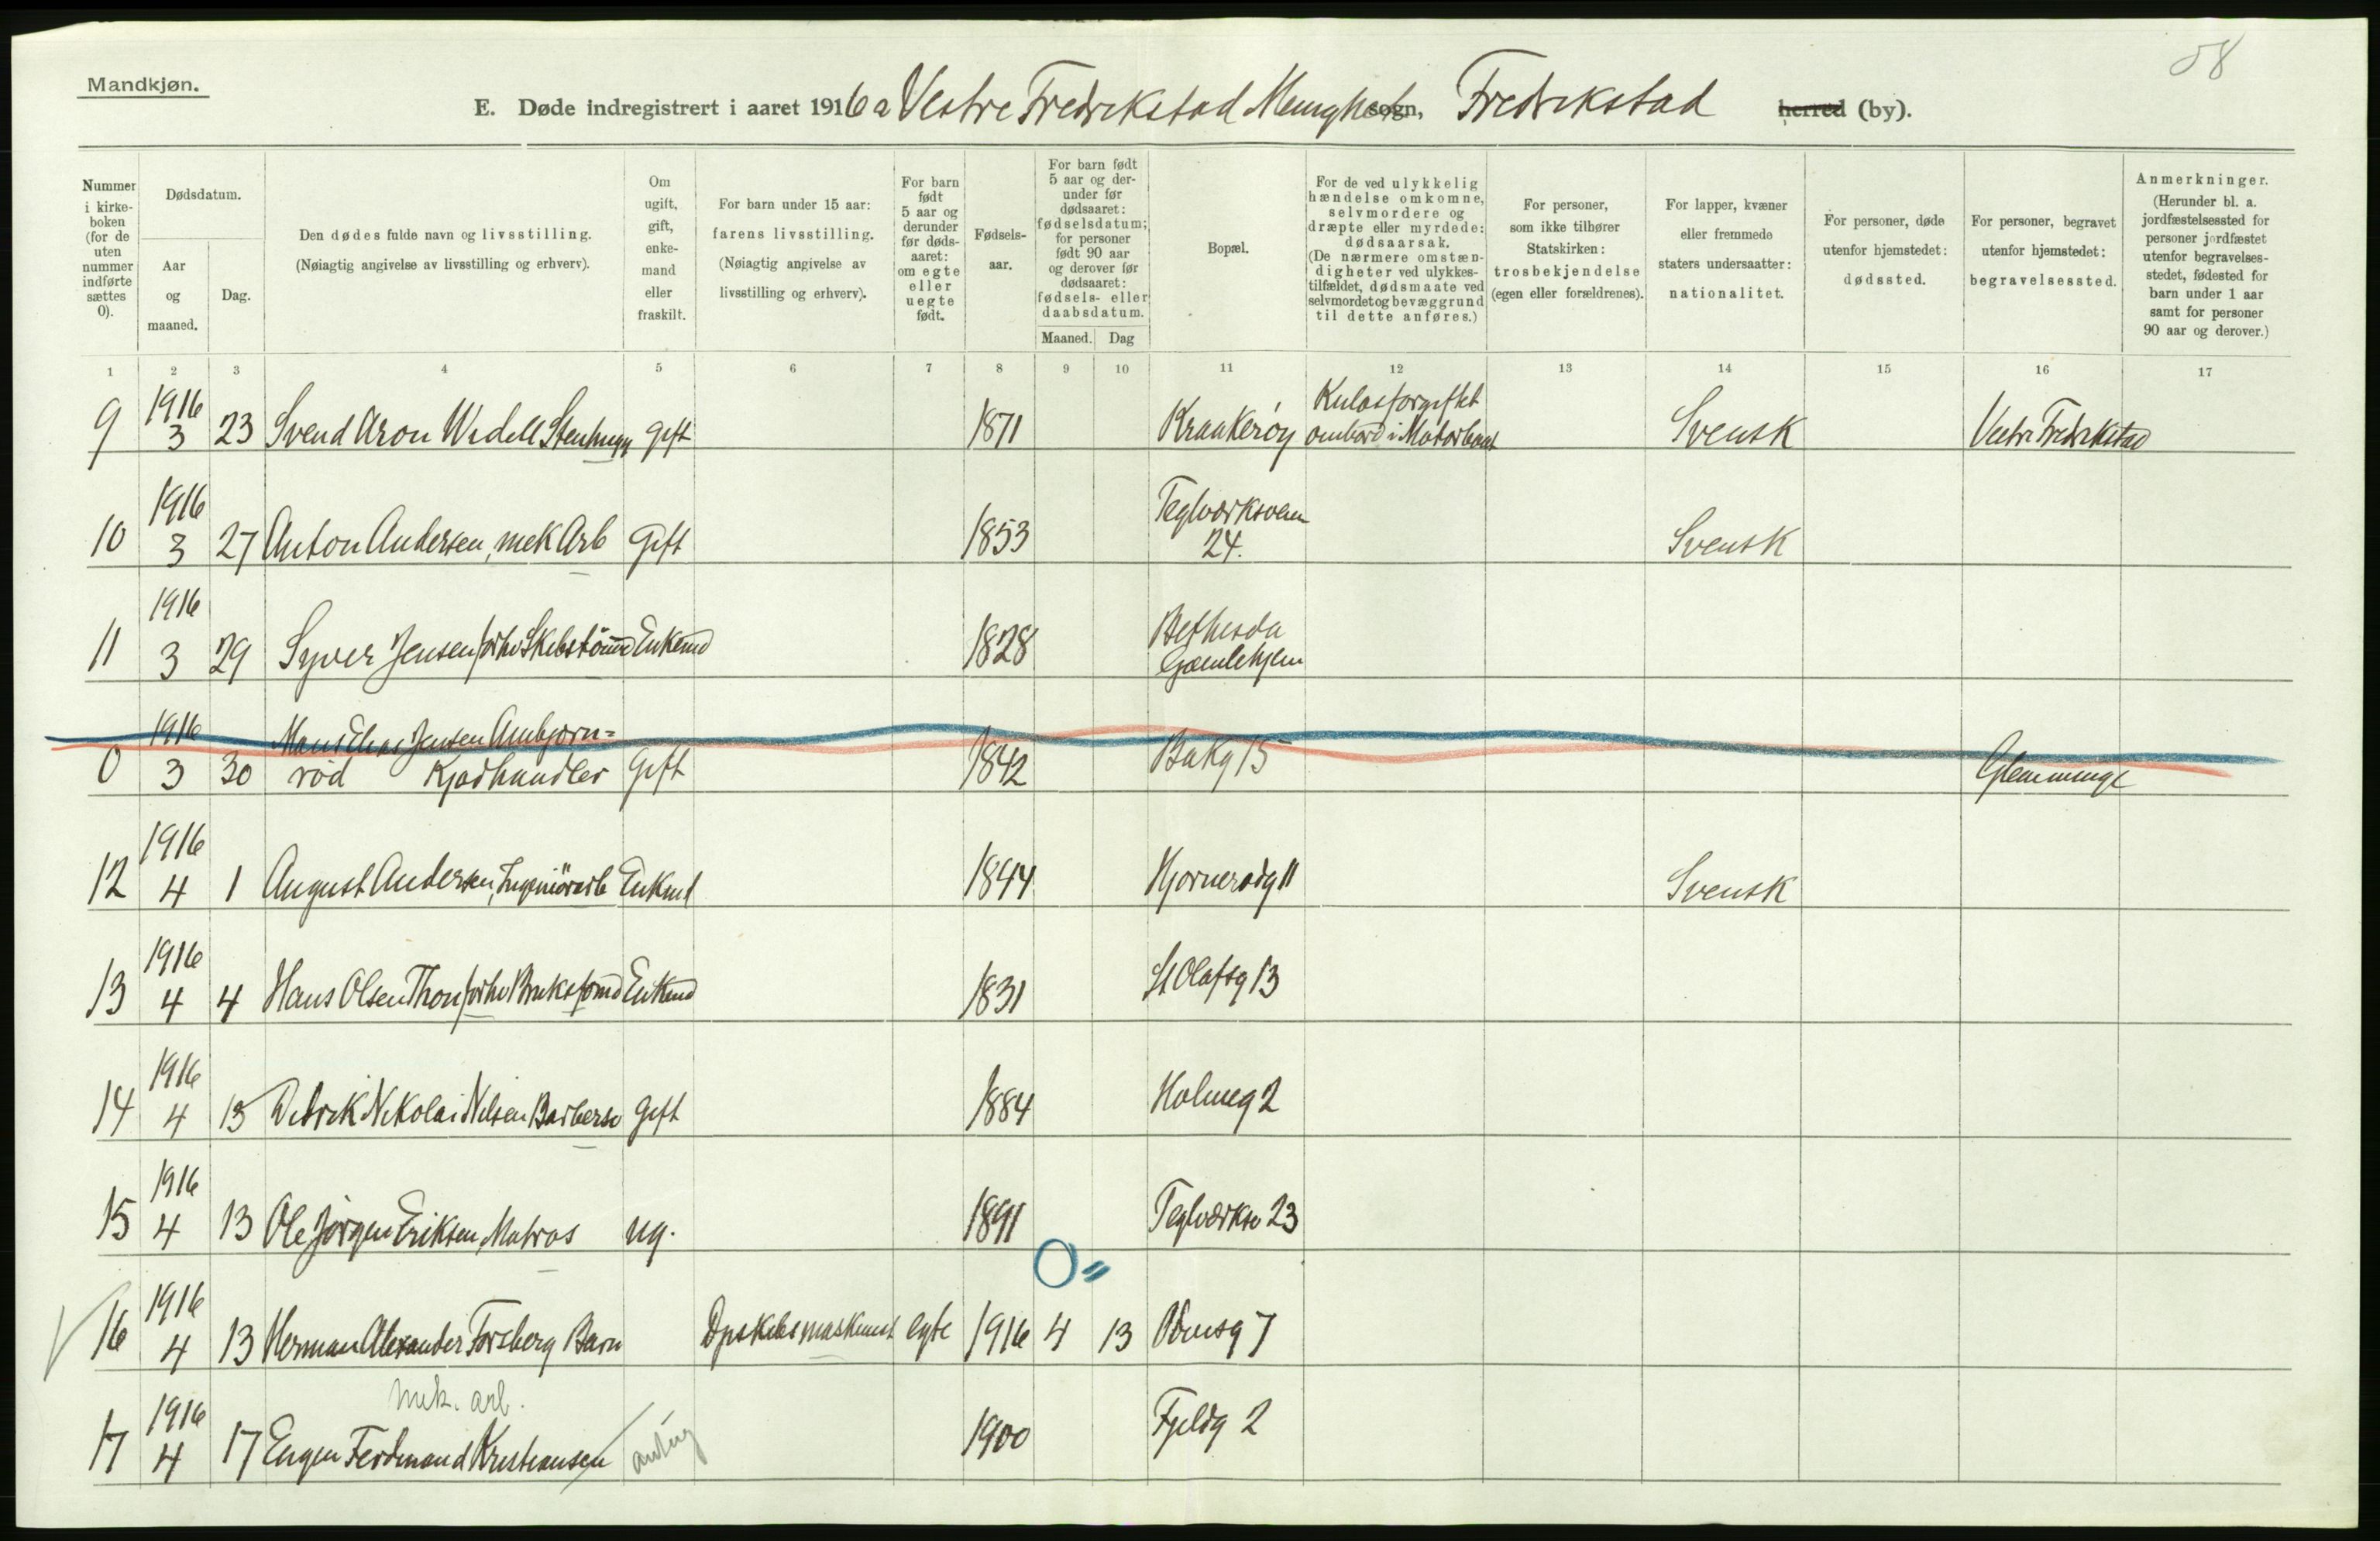 58
Mandkjøn.
E. Døde indregistrert i aaret 1916 a Vestre Fredrikstad Menighet sogn, Fredrikstad herred (by).
Nummer i kirkeboken (for de uten nummer indførte sættes 0).
Dødsdatum.
Aar og maaned.
Dag.
Den dødes fulde navn og livsstilling. (Nøiagtig angivelse av livsstilling og erhverv).
Om ugift, gift, enkemand eller fraskilt.
For barn under 15 aar: farens livsstilling. (Nøiagtig angivelse av livsstilling og erhverv).
For barn født 5 aar og derunder før dødsaaret: om egte eller uegte født.
Fødselsaar.
For barn født 5 aar og derunder før dødsaaret: fødselsdatum; for personer født 90 aar og derover før dødsaaret: fødsels- eller daabsdatum.
Maaned. Dag
Bopæl.
For de ved ulykkelig hændelse omkomne, selvmordere og dræpte eller myrdede: dødsaarsak. (De nærmere omstændigheter ved ulykkestilfældet, dødsmaate ved selvmordet og bevæggrund til dette anføres.)
For personer, som ikke tilhører Statskirken: trosbekjendelse (egen eller forældrenes).
For lapper, kvæner eller fremmede staters undersaatter: nationalitet.
For personer, døde utenfor hjemstedet: dødssted.
For personer, begravet utenfor hjemstedet: begravelsessted.
Anmerkninger. (Herunder bl. a. jordfæstelsessted for personer jordfæstet utenfor begravelsesstedet, fødested for barn under 1 aar samt for personer 90 aar og derover.)
1 2 3 4 5 6 7 8 9 10 11 12 13 14 15 16 17
9 1916 3 23 Svend Aron Widell Stenhugg gift 1871 Kraakerøy Kulosforgiftet ombord i Motorbaat Svensk Vestre Fredrikstad
10 1916 3 27 Anton Andersen, mek Arb Gift 1853 Teglværksveien 24. Svensk
11 1916 3 29 Syver Jensen forhv Skibstømmd Enkemd 1828 Bethesda Gamlehjem
0 1916 3 30 Hans Elias Jensen Ambjørn= rød Kjødhandler Gift 1842 Bakg 15 Glemminge
12 1916 4 1 August Andersen, Ingeniörarb Enkmd 1844 Hjørnerødg 11 Svensk
13 1916 4 4 Hans Olsen Thon forhv Bruksfomd Enkemd 1831 St Olafsg 13
14 1916 4 13 Didrik Nikolai Nilsen Barbersv Gift 1884 Holmeg 2
15 1916 4 13 Ole Jørgen Eriksen Matros ug. 1891 Teglværksv 23
16 1916 4 13 Herman Alexander Forsberg Barn Dpskibsmaskinist egte 1916 4 13 Odinsg 7
0 "
mek. arb.
17 1916 4 17 Eugen Ferdinand Kristiansen ant ug 1900 Fjeldg 2